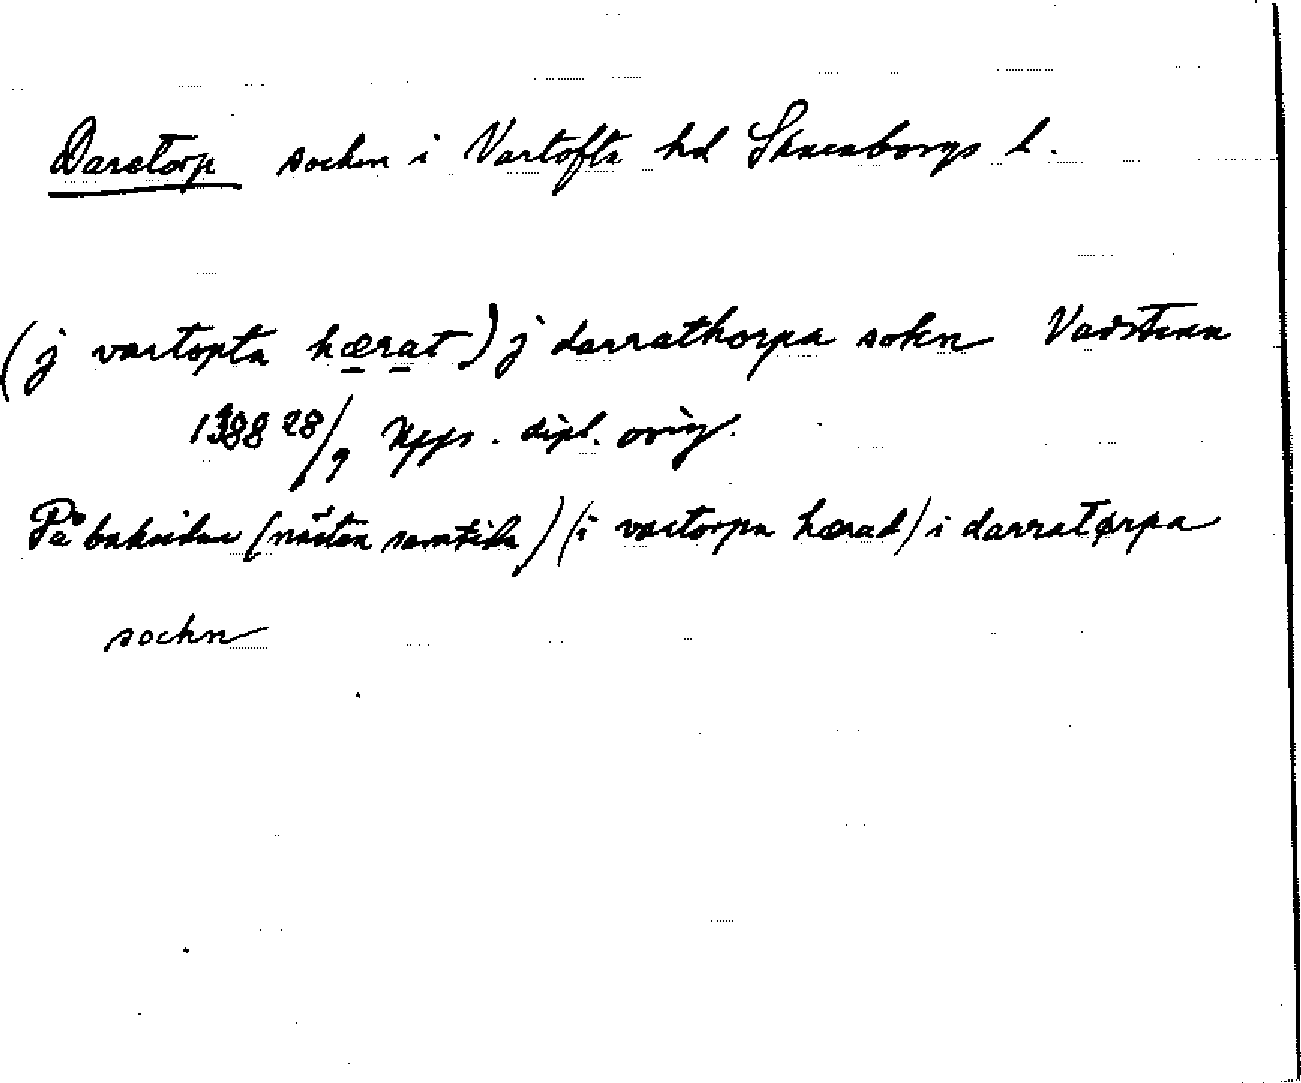 Daretorp socken i Vartofta hd Skaraborgs l.
(j vartopta hærat) j darrathorpa sokn Vadstena
1388 28/9 Upps. dipl. orig.
På baksidan (nästan samtida) (i vartorpa hærad) i darratørpa
sochn